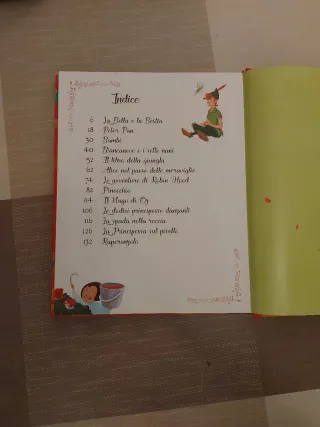 Indice
6 La Bella e la Bestia
18 Peter Pan
30 Bambi
40 Biancaneve e i sette nani
52 Il libro della giungla
62 Alice nel paese delle meraviglie
74 Le avventure di Robin Hood
82 Pinocchio
94 Il Mago di Oz
106 Le dodici principesse danzanti
116 La spada nella roccia
126 La Principessa sul pisello
132 Raperonzolo